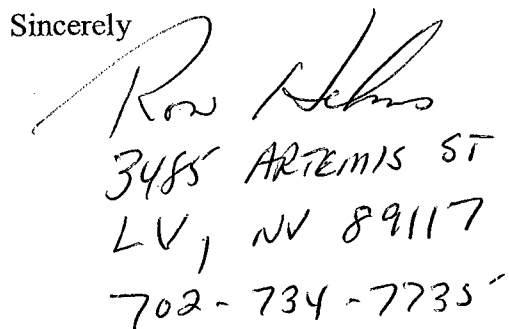 Sincerely
Ron Helms
3485 ARTEMIS ST
LV, NV 89117
702-734-7735